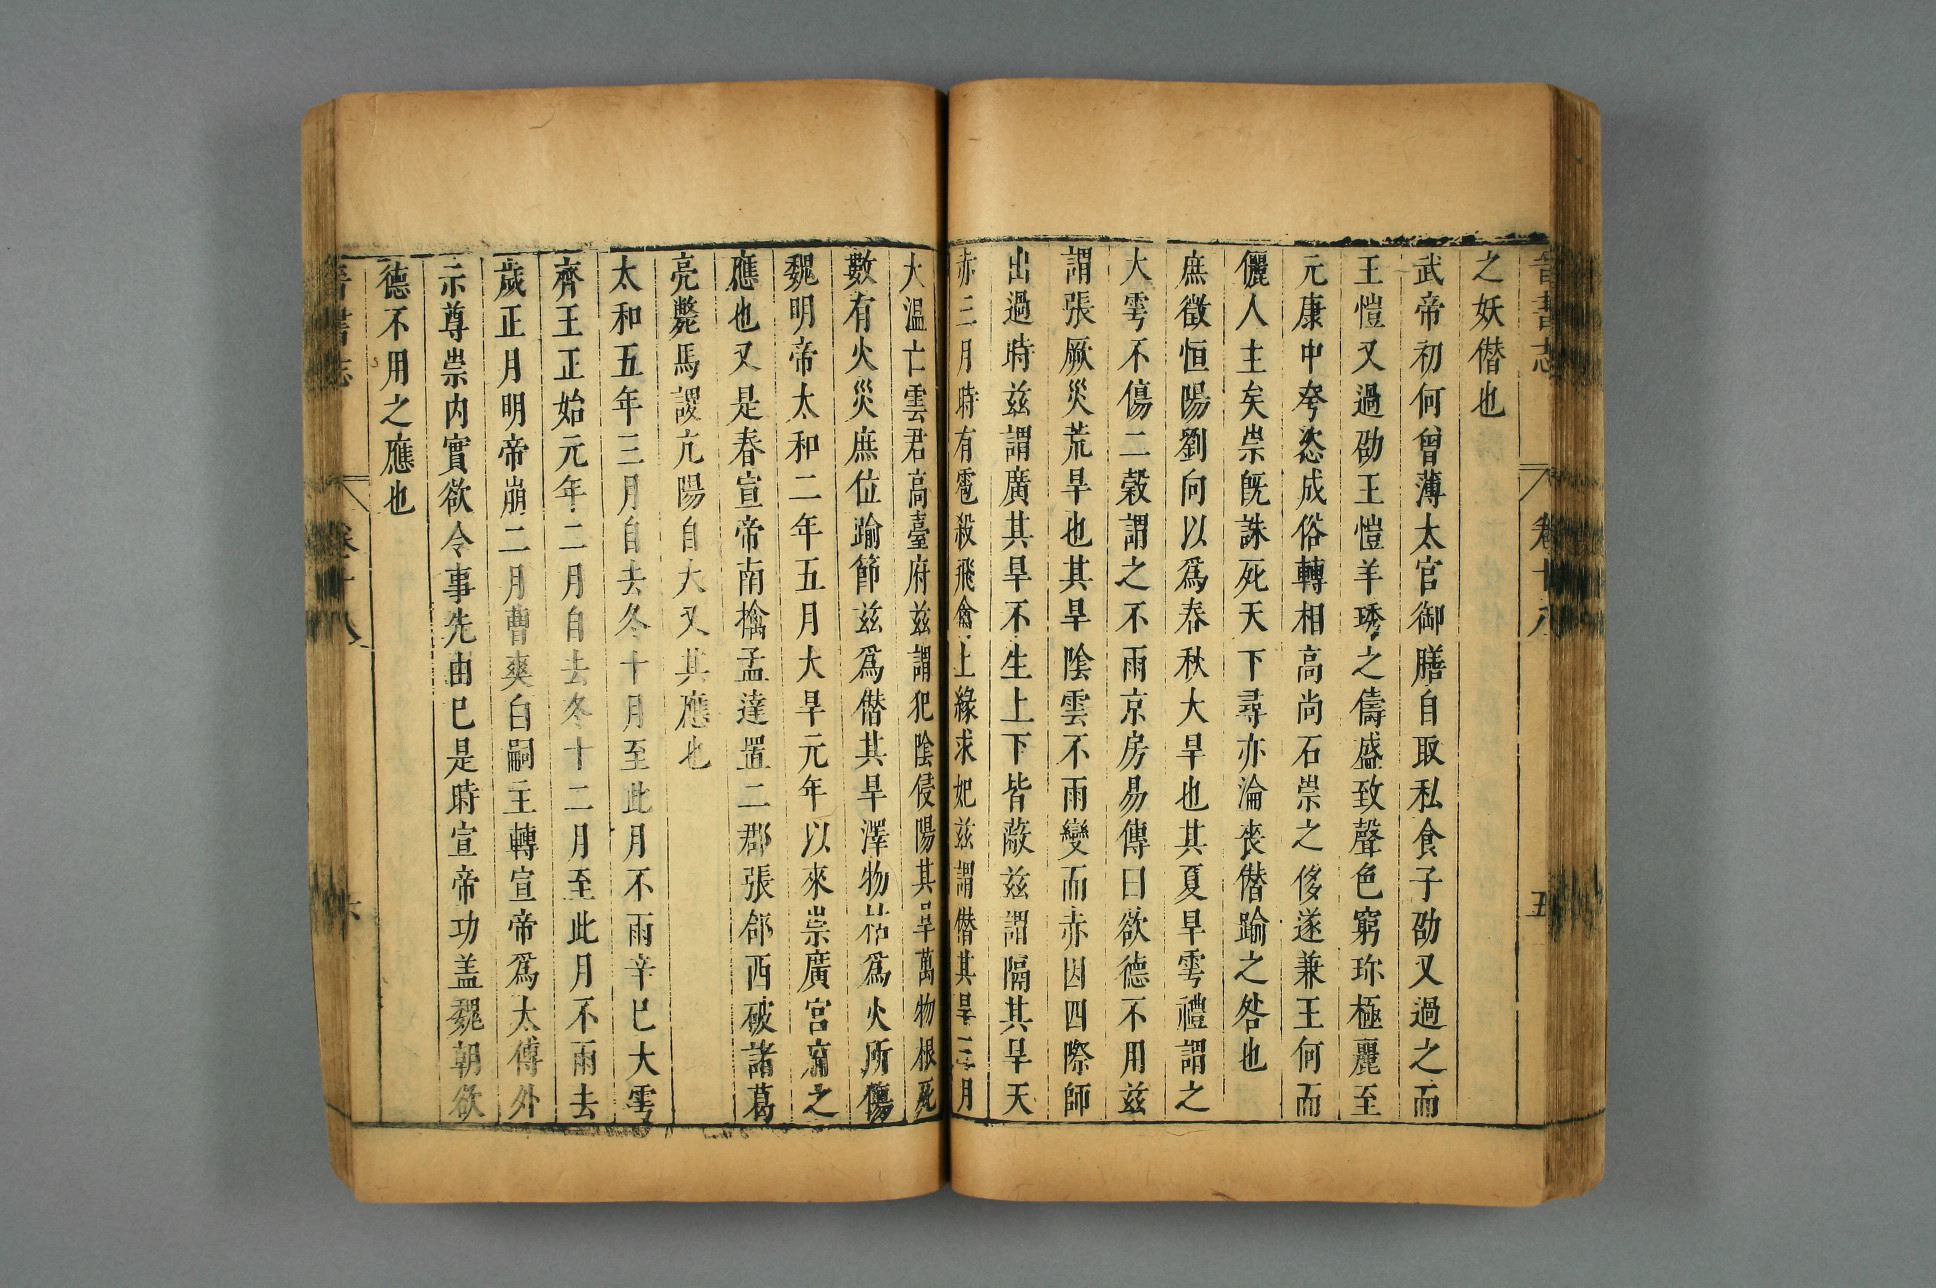 晉書志 卷十八 五
之妖僣也
武帝初何曾薄太官御膳自取私食子劭又過之而
王愷又過劭王愷羊琇之儔盛致聲色窮珎極麗至
元康中夸恣成俗轉相高尚石崇之侈遂兼王何而
儷人主矣崇旣誅死天下尋亦淪喪僣踰之咎也
庶徵恒陽劉向以爲春秋大旱也其夏旱雩禮謂之
大雩不傷二榖謂之不雨京房易傳曰欲德不用茲
謂張厥災荒旱也其旱陰雲不雨變而赤因四際師
出過時茲謂廣其旱不生上下皆蔽茲謂隔其旱天
赤三月時有雹殺飛禽上緣求妃茲謂僣其旱三月
大温亡雲君高臺府茲謂犯陰侵陽其旱萬物根死
數有火災庶位踰節茲爲僣其旱澤物枯爲火所傷
魏明帝太和二年五月大旱元年以來崇廣宮府之
應也又是春宣帝南擒孟達置二郡張郃西破諸葛
亮斃馬謖亢陽自大又其應也
太和五年三月自去冬十月至此月不雨辛巳大雩
齊王正始元年二月自去冬十二月至此月不雨去
歲正月明帝崩二月曹爽白嗣主轉宣帝爲太傅外
示尊崇内實欲令事先由己是時宣帝功盖魏朝欲
德不用之應也
晉書志 卷十八 六